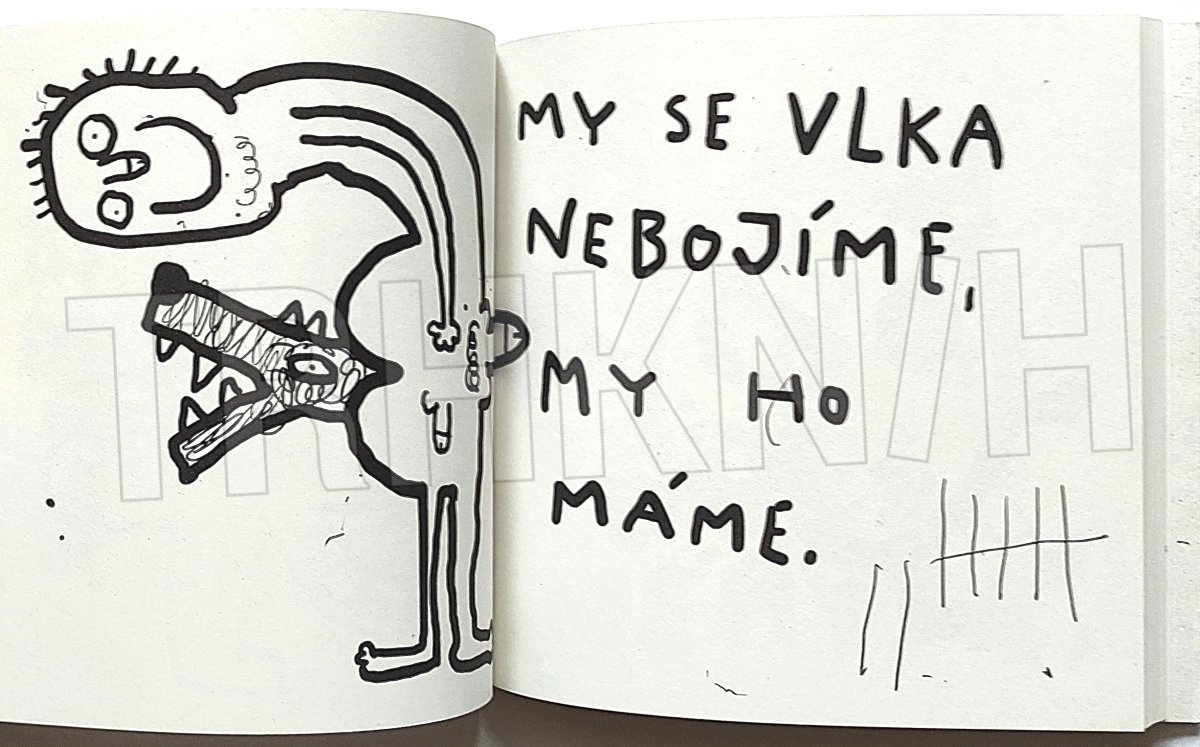 MY SE VLKA
NEBOJÍME,
MY HO
MÁME.
TRHKNIH